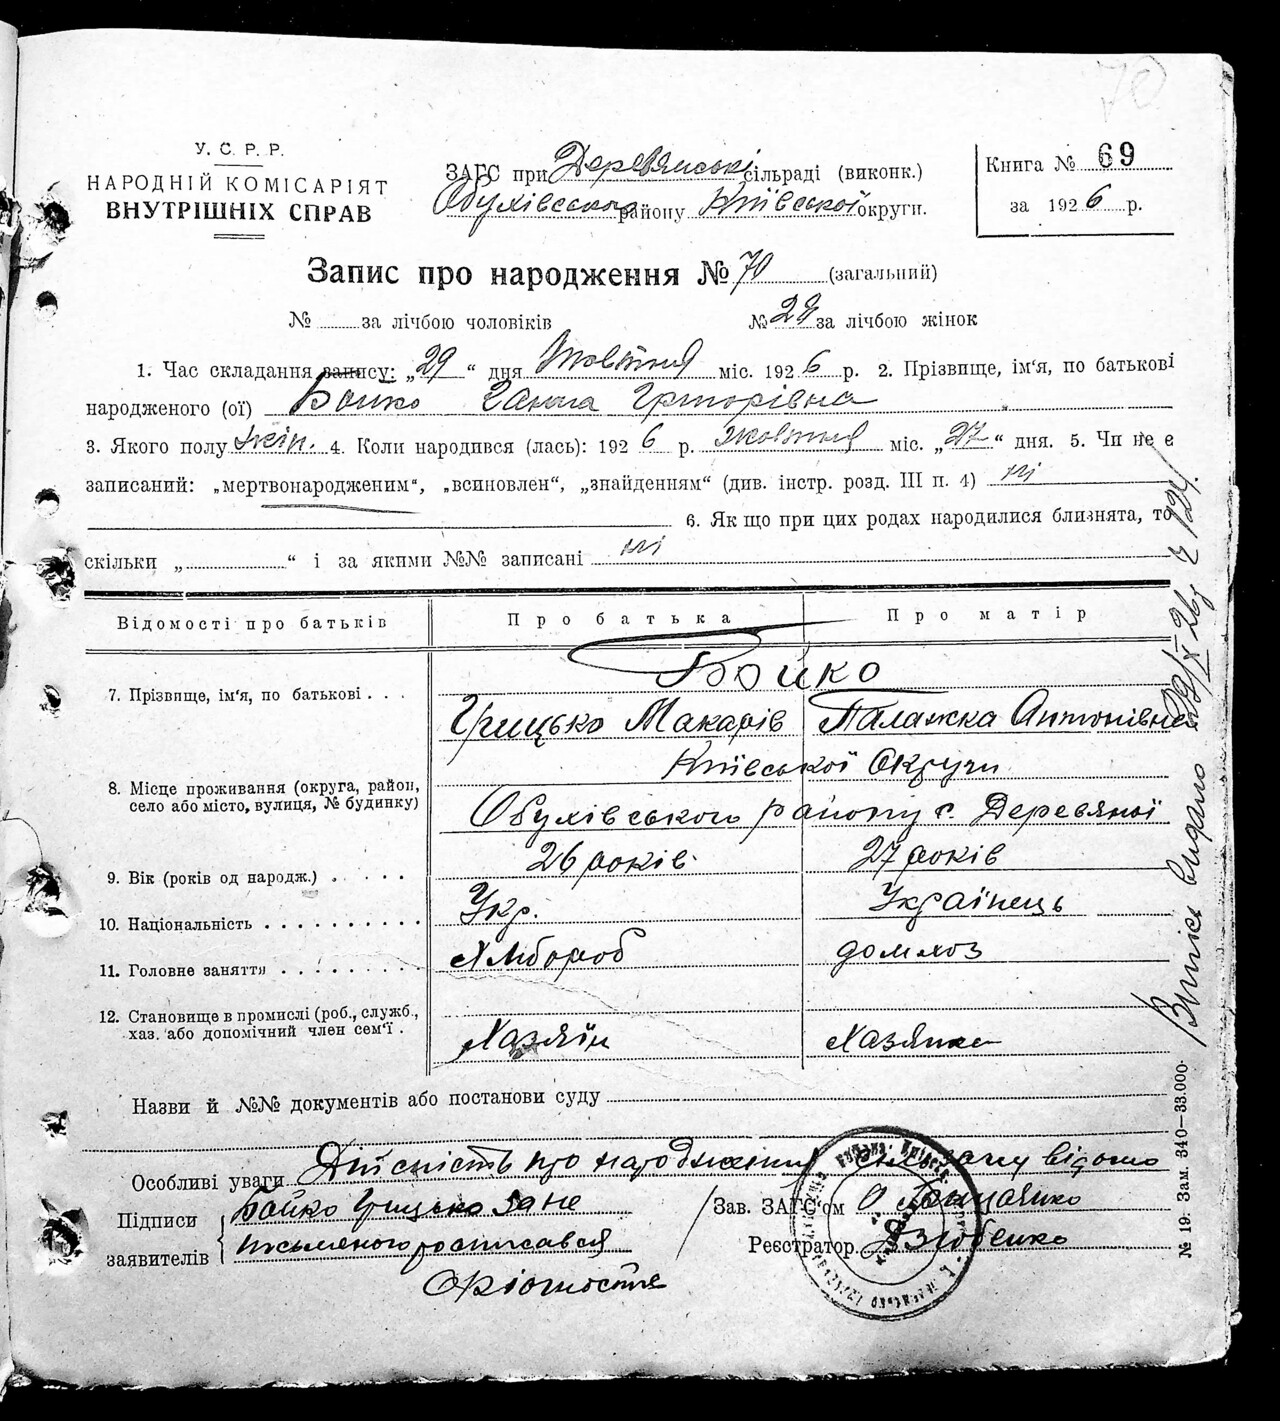 70
У. С. Р. Р.
НАРОДНІЙ КОМІСАРІЯТ
ВНУТРІШНІХ СПРАВ
ЗАГС при Деревянські сільраді (виконк.)
Обухівського району Київської округи.
Книга № 69
за 1926 р.
Запис про народження № 70 (загальний)
№ за лічбою чоловіків № 29 за лічбою жінок
1. Час складання запису: „29“ дня Жовтня міс. 1926 р. 2. Прізвище, ім'я, по батькові
народженого (ої) Бойко Ганна Григорівна
3. Якого полу жін. 4. Коли народився (лась): 1926 р. жовтня міс. „27“ дня. 5. Чи не є
записаний: „мертвонародженим“, „всиновлен“, „знайденням“ (див. інстр. розд. III п. 4) ні
6. Як що при цих родах народилися близнята, то
скільки „ “ і за якими №№ записані ні
Відомості про батьків Про батька Про матір
Бойко
7. Прізвище, ім'я, по батькові . . . Грицько Макарів Палажка Антонівна
Київської Округи
8. Місце проживання (округа, район,
село або місто, вулиця, № будинку) Обухівського району с. Деревяної
9. Вік (років од народж.) . . . . . 26 років 27 років
10. Національність . . . . . . . . . . Укр. Українець
11. Головне заняття . . . . . . . . . Хлібороб домхоз
12. Становище в промислі (роб., служб.,
хаз. або допомічний член сем'ї . Хазяїн Хазяйка
Назви й №№ документів або постанови суду
Особливі уваги Дійсність про народження сільраді відомо
Підписи заявителів Бойко Грицько за не
письменого росписався
Зав. ЗАГС'ом
Реєстратор Дзюбенко
Випись видано
№ 19. Зам. 340—33.000.